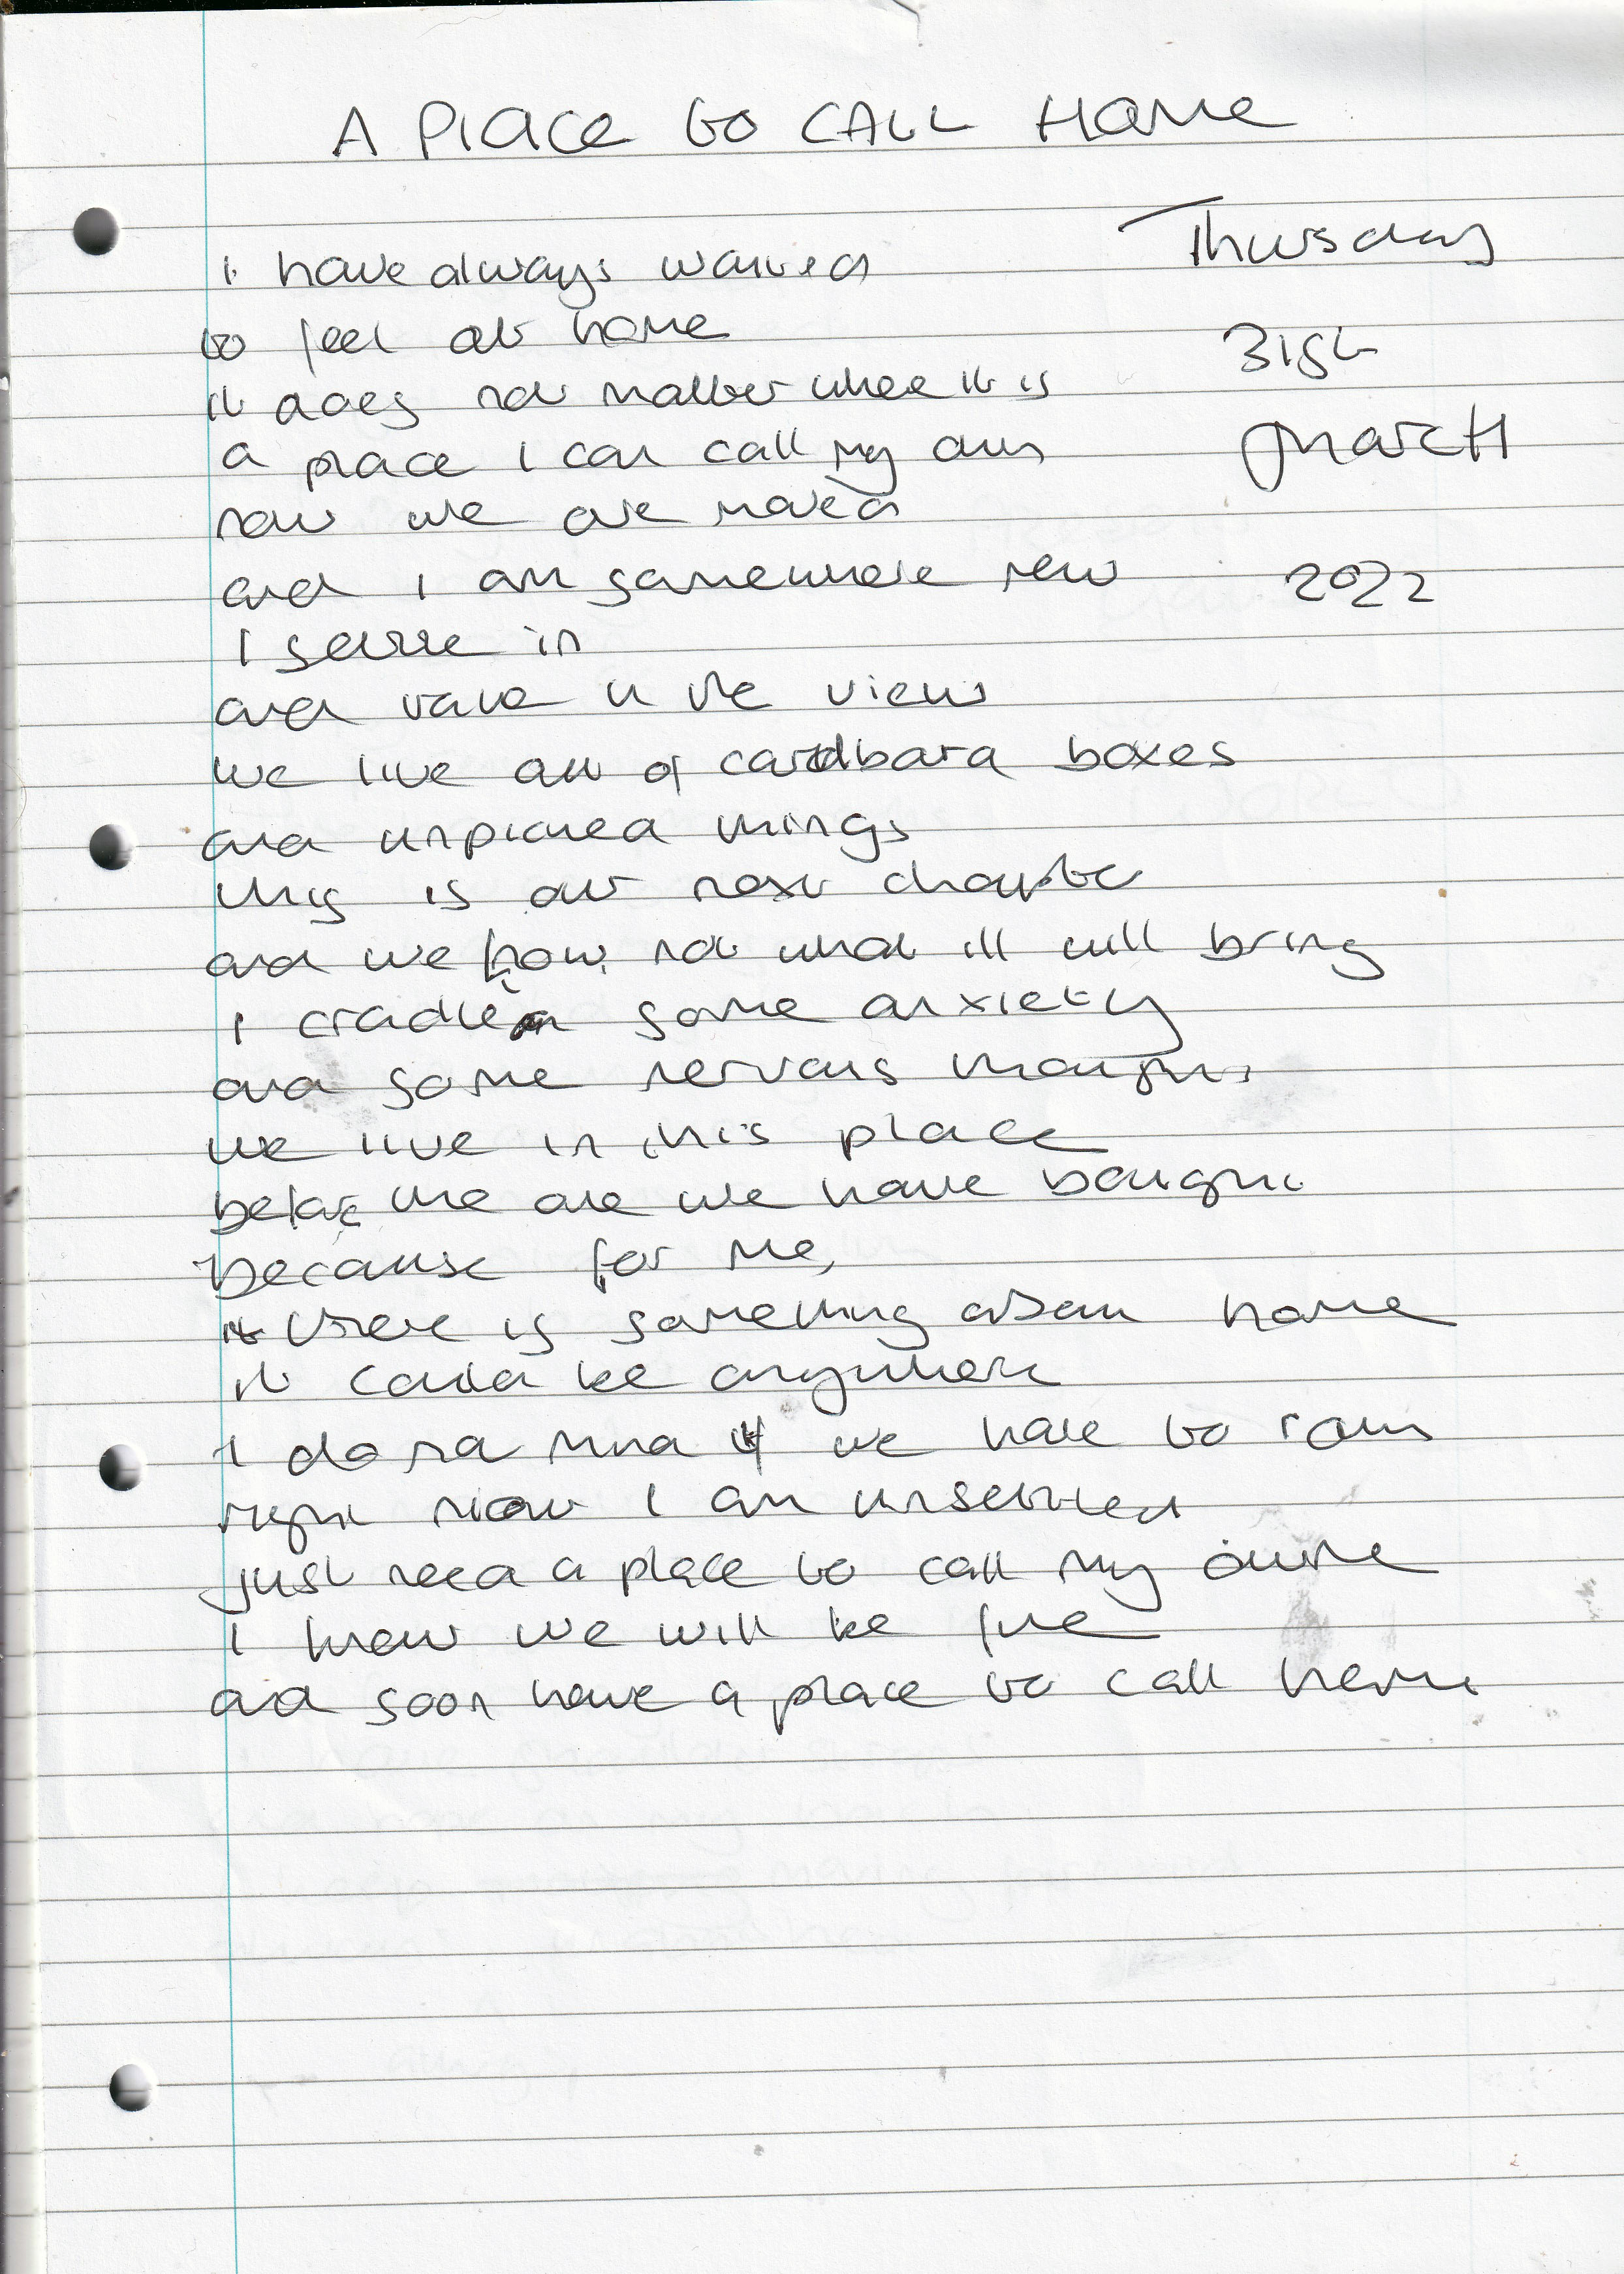 A PLACE to CALL HOME
Thursday
31st
MARCH
2022
i have always wanted
to feel at home
it does not matter where it is
a place I can call my own
now we are moved
and I am somewhere new
I settle in
and take in the view
we live out of cardboard boxes
and unpicked things
this is our next chapter
and we know not what it will bring
I cradle some anxiety
and some nervous thoughts
we live in this place
before the one we have bought
because for me,
there is something about home
it could be anywhere
I do not mind if we have to roam
right now I am unsettled
just need a place to call my own
I know we will be fine
and soon have a place to call home